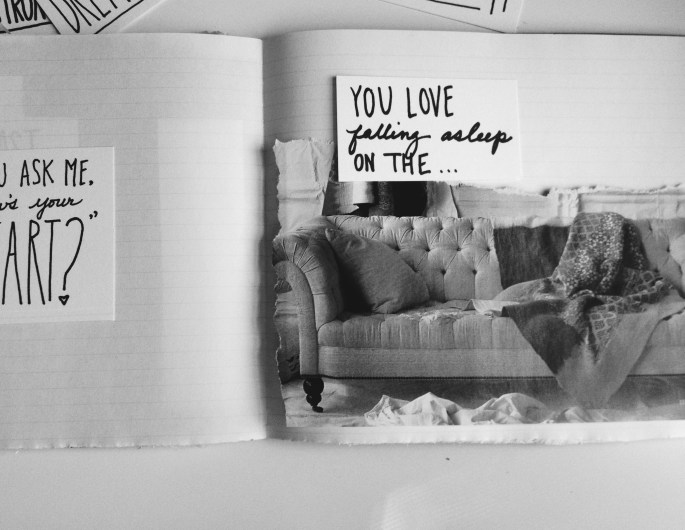 U ASK ME,
w's your
ART?"
YOU LOVE
falling asleep
ON THE...